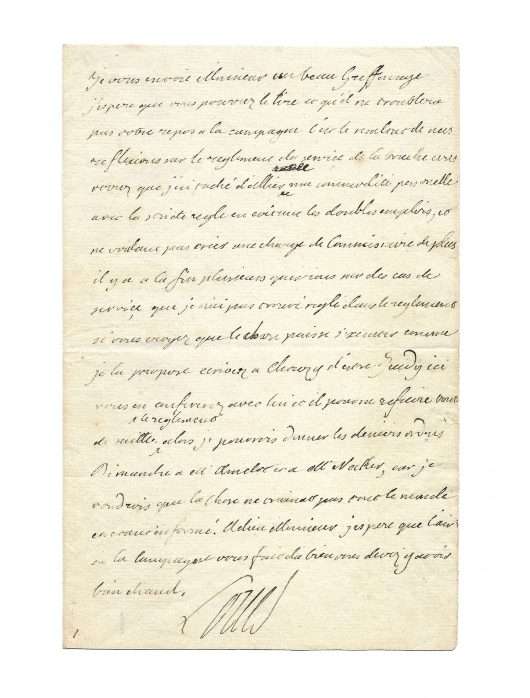 Je vous envoie Monsieur un beau Griffonage
j'espere que vous pourrez le lire et qu'il ne troublera
pas votre repos a la campagne c'est le resultat de mes
reflexions sur le reglement du service de la bouche vous
verrez que j'ai taché d'allier ma commodité personelle
avec la stricte regle en evitant les doubles emplois, et
ne voulant pas créer une charge de Commissaire de plus
il y a a la fin plusieurs questions sur des cas de
service que je n'ai pas trouvé reglé dans le reglement
si vous croyez que la chose puisse s'executer comme
je la propose ecrivez a Chouzy d'etre Jeudy ici
vous en confererez avec lui et il pourra refaire tout
de suitte le reglement alors je pourrois donner les derniers ordres
Dimanche a M Amelot et a M Necker, car je
voudrois que la chose ne trainat pas tout le monde
en étant informé. Adieu Monsieur j'espere que l'air
de la campagne vous fait du bien vous devez y avoir
bien chaud.
Louis